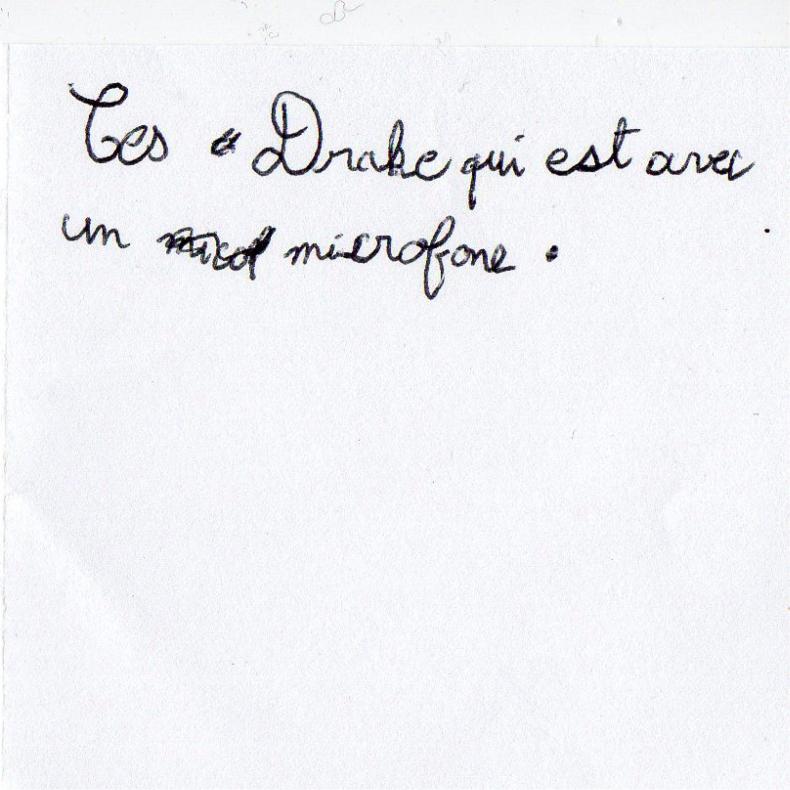 Ces " Drake qui est avec
un microfone .